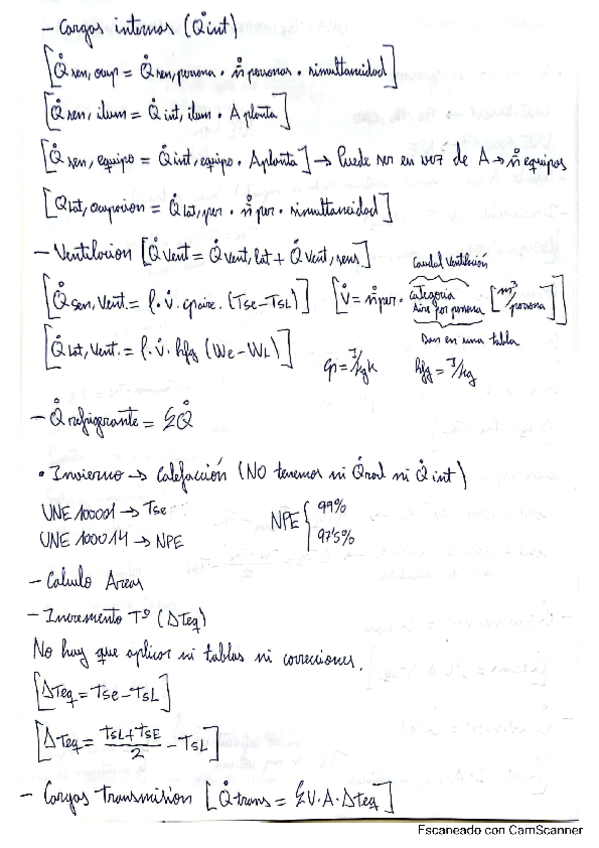 - Cargas internas (Q̇int)
[Q̇sen, ocup = Q̇sen, persona · n̊ personas · simultaneidad]
[Q̇sen, ilum = Q̇int, ilum · A planta]
[Q̇sen, equipo = Q̇int, equipo · A planta] → Puede ser en vez de A → n̊ equipos
[QLat, ocupacion = Q̇Lat, per · n̊ per · simultaneidad]
- Ventilacion [Q̇Vent = Q̇vent, lat + Q̇vent, sens]
Caudal Ventilación
[Q̇sen, Vent. = ρ · v̇ · cp aire · (Tse - TsL)] [V̇ = n̊ per · categoria Aire por persona [m³/persona]]
Dan en una tabla
[Q̇Lat, Vent. = ρ · v̇ · hfg (We - WL)] cp = J/kgK hfg = J/kg
- Q̇ refrigerante = ΣQ̇
• Invierno → Calefacción (NO tenemos ni Q̇rad ni Q̇int)
UNE 100001 → Tse
UNE 100014 → NPE
NPE { 99%
97'5%
- Calculo Areas
- Incremento Tª (ΔTeq)
No hay que aplicar ni tablas ni correciones.
[ΔTeq = Tse - TsL]
[ΔTeq = TsL + TSE / 2 - TsL]
- Cargas transmision [Q̇trans = ΣU · A · ΔTeq]
Escaneado con CamScanner